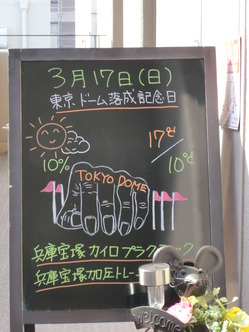 3月17日(日)
東京ドーム落成記念日
17℃/10℃
10%
TOKYO DOME
兵庫宝塚カイロプラクティック
兵庫宝塚加圧トレー
welcome